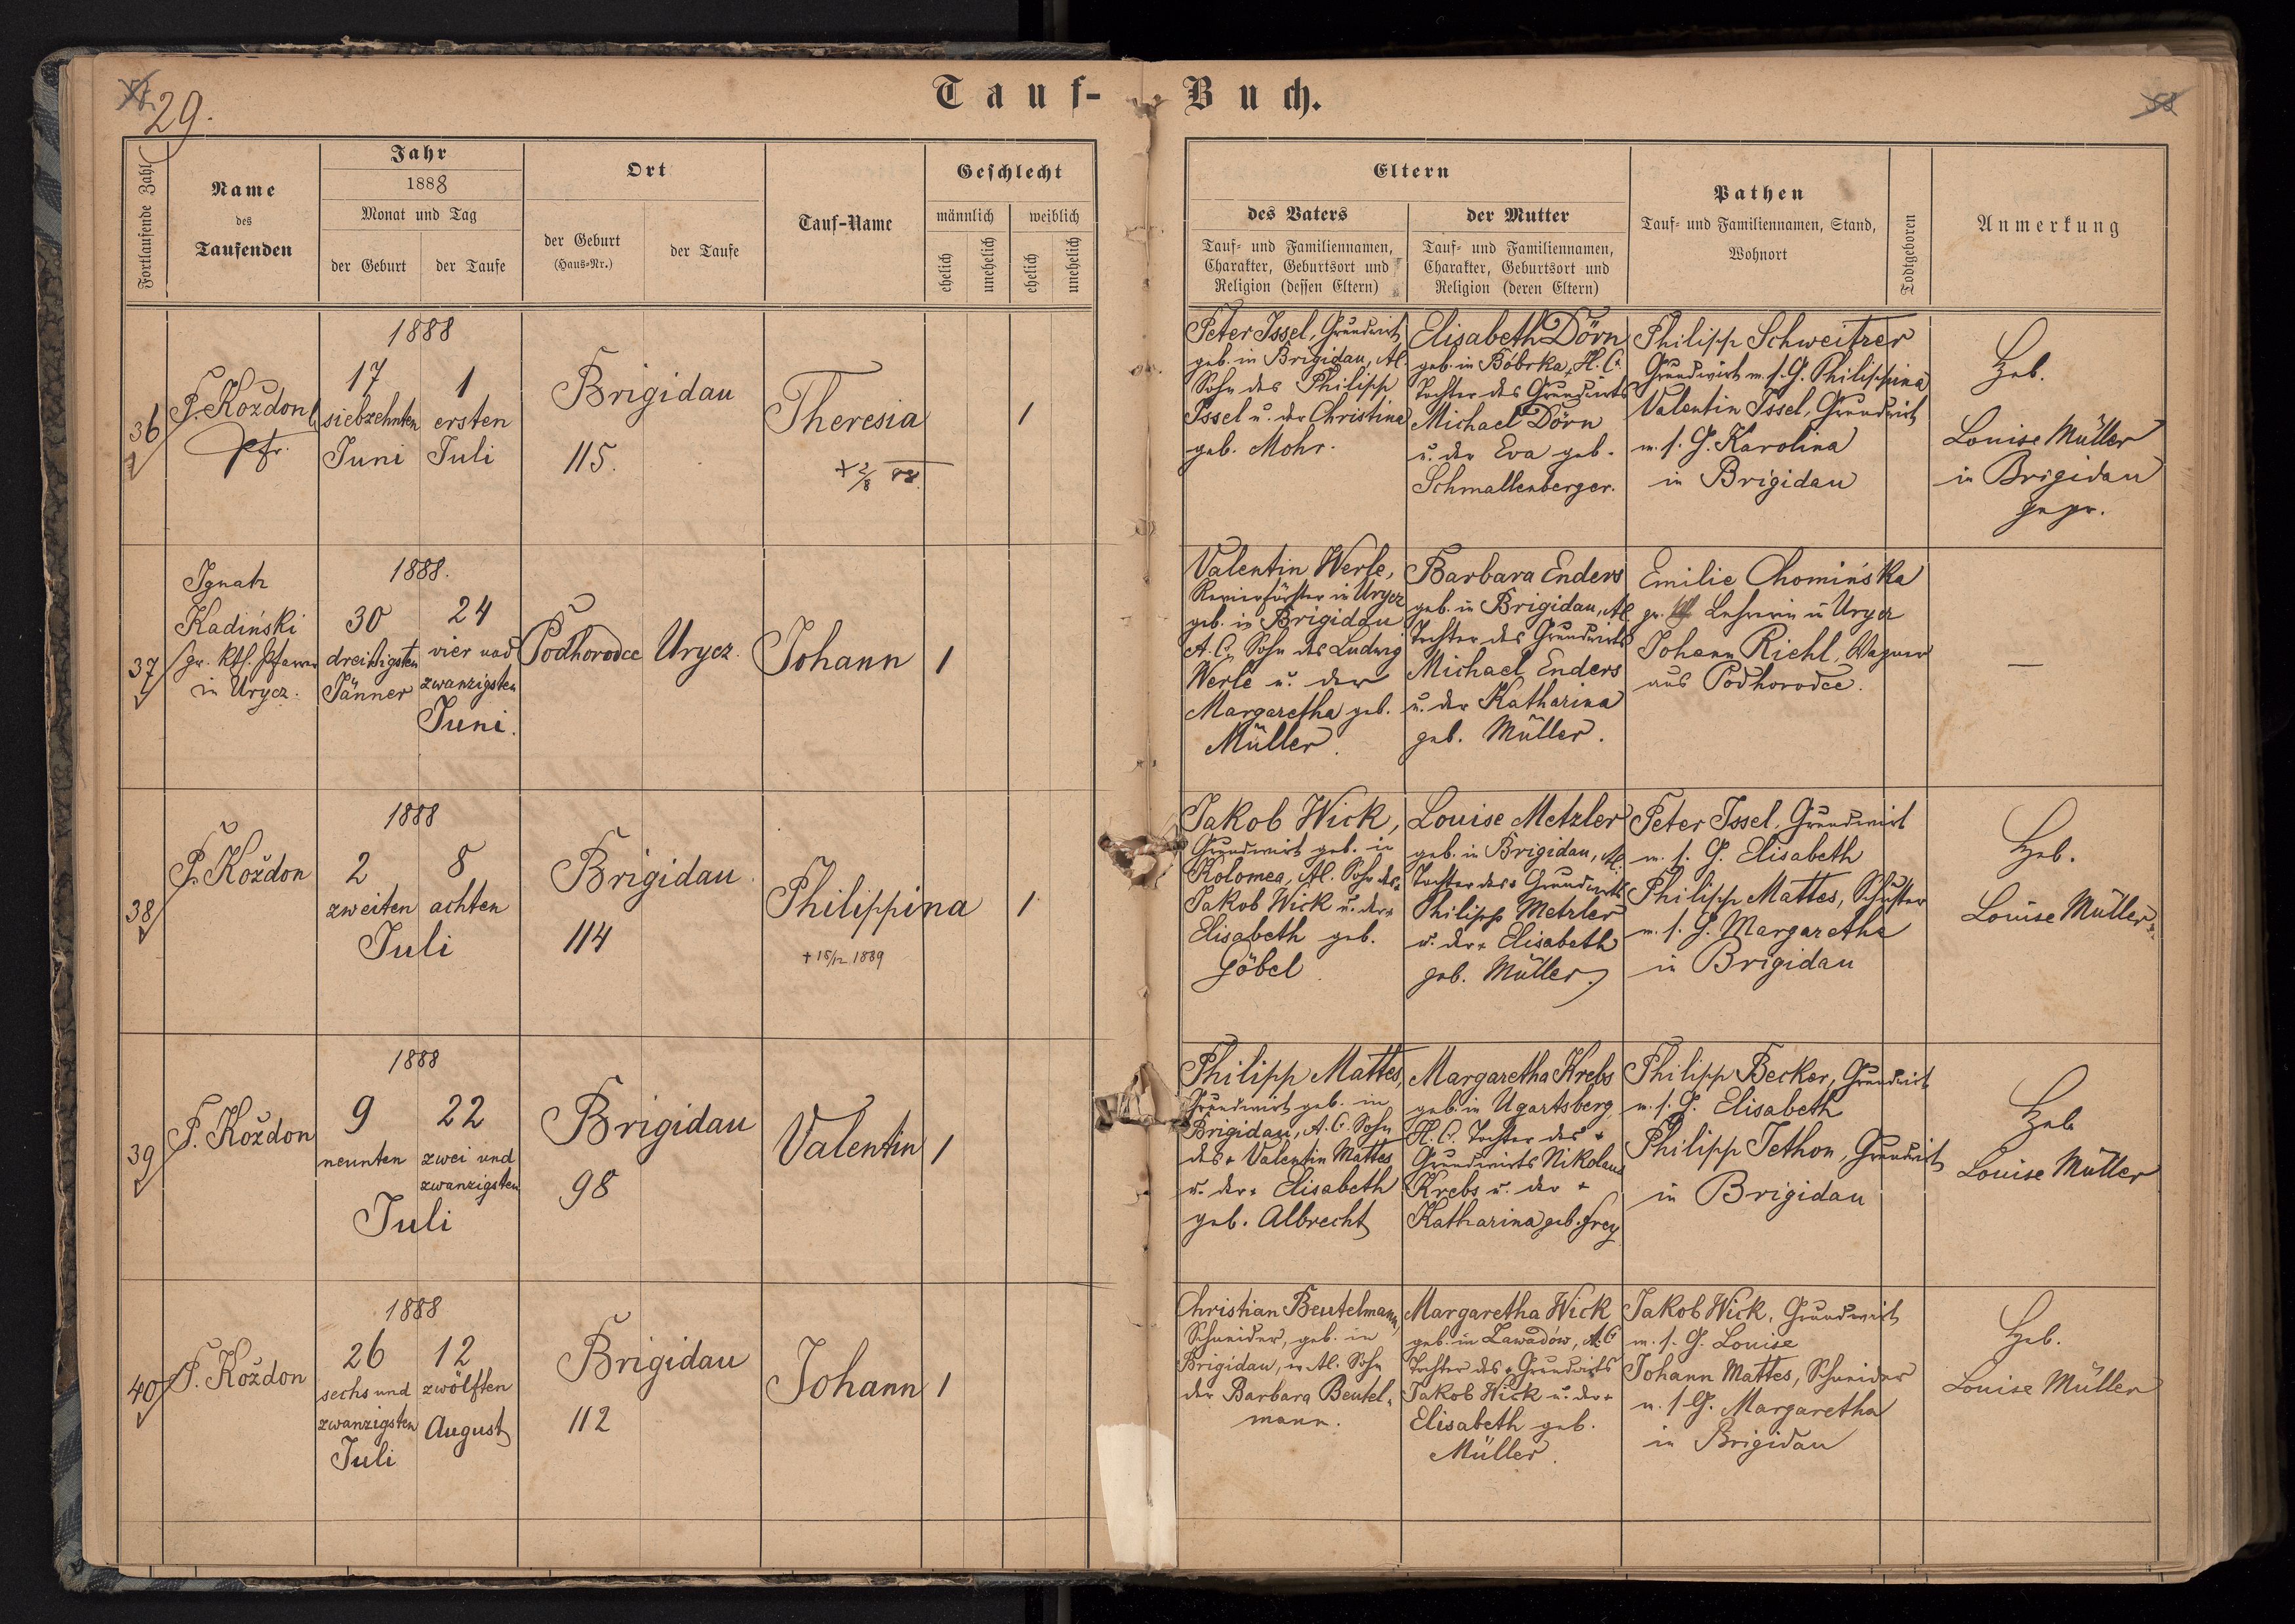 29.
Tauf-Buch.
Fortlaufende Zahl
Name
des
Taufenden
Jahr
1888
Monat und Tag
der Geburt
der Taufe
Ort
der Geburt
(Haus-Nr.)
der Taufe
Tauf-Name
Geschlecht
männlich
weiblich
ehelich
unehelich
ehelich
unehelich
Eltern
des Vaters
Tauf- und Familiennamen,
Charakter, Geburtsort und
Religion (dessen Eltern)
der Mutter
Tauf- und Familiennamen,
Charakter, Geburtsort und
Religion (deren Eltern)
Pathen
Tauf- und Familiennamen, Stand,
Wohnort
Todtgeboren
Anmerkung
36
F. Koždon
Pfr.
1888
17
siebzehnten
Juni
1
ersten
Juli
Brigidau
115.
Theresia
+ 2/8 88.
1
Peter Issel, Grundwirt
geb. in Brigidau, A.C.
Sohn des Philipp
Issel u. der Christina
geb. Mohr.
Elisabeth Dörn
geb. in Bóbrka, H.C.
Tochter des Grundwirts
Michael Dörn
u. der Eva geb.
Schmallenberger.
Philipp Schweitzer
Grundwirt m. s. G. Philippina
Valentin Issel, Grundwirt
m. s. G. Karolina
in Brigidau
Heb.
Louise Müller
in Brigidau
gepr.
37
Ignatz
Kadiński
gr. kth. Pfarrer
in Urycz.
1888.
30
dreißigsten
Jänner
24
vier und
zwanzigsten
Juni.
Podhorodce
Urycz.
Johann
1
Valentin Werle,
Revierförster in Urycz
geb. in Brigidau
A.C., Sohn des Ludwig
Werle u. der
Margaretha geb.
Müller.
Barbara Enders
geb. in Brigidau, A.C.
Tochter des Grundwirts
Michael Enders
u. der Katharina
geb. Müller.
Emilie Chomińska
gr. Lehrerin in Urycz
Johann Riehl, Wagner
aus Podhorodce.
—
38
F. Koždon
1888
2
zweiten
8
achten
Juli
Brigidau
114
Philippina
+ 15/12 1889
1
Jakob Wick,
Grundwirt geb. in
Kolomea, A.C. Sohn des +
Jakob Wick u. der +
Elisabeth geb.
Göbel.
Louise Metzler
geb. in Brigidau, A.C.
Tochter des + Grundwirts
Philipp Metzler
u. der + Elisabeth
geb. Müller.
Peter Issel, Grundwirt
m. s. G. Elisabeth
Philipp Mattes, Schuster
m. s. G. Margaretha
in Brigidau
Heb.
Louise Müller
39
F. Koždon
1888
9
neunten
22
zwei und
zwanzigsten
Juli
Brigidau
98
Valentin
1
Philipp Mattes,
Grundwirt geb. in
Brigidau, A.C. Sohn
des + Valentin Mattes
u. der + Elisabeth
geb. Albrecht
Margaretha Krebs
geb. in Ugartsberg
H.C. Tochter des +
Grundwirts Nikolaus
Krebs u. der +
Katharina geb. Frey
Philipp Becker, Grundwirt
m. s. G. Elisabeth
Philipp Jethon, Grundwirt
in Brigidau
Heb.
Louise Müller
40
F. Koždon
1888
26
sechs und
zwanzigsten
Juli
12
zwölften
August
Brigidau
112
Johann
1
Christian Beutelmann,
Schneider, geb. in
Brigidau, A.C. Sohn
der Barbara Beutel-
mann.
Margaretha Wick
geb. in Zawadów, A.C
Tochter des + Grundwirts
Jakob Wick u. der +
Elisabeth geb.
Müller.
Jakob Wick, Grundwirt
m. s. G. Louise
Johann Mattes, Schneider
m. s. G. Margaretha
in Brigidau
Heb.
Louise Müller